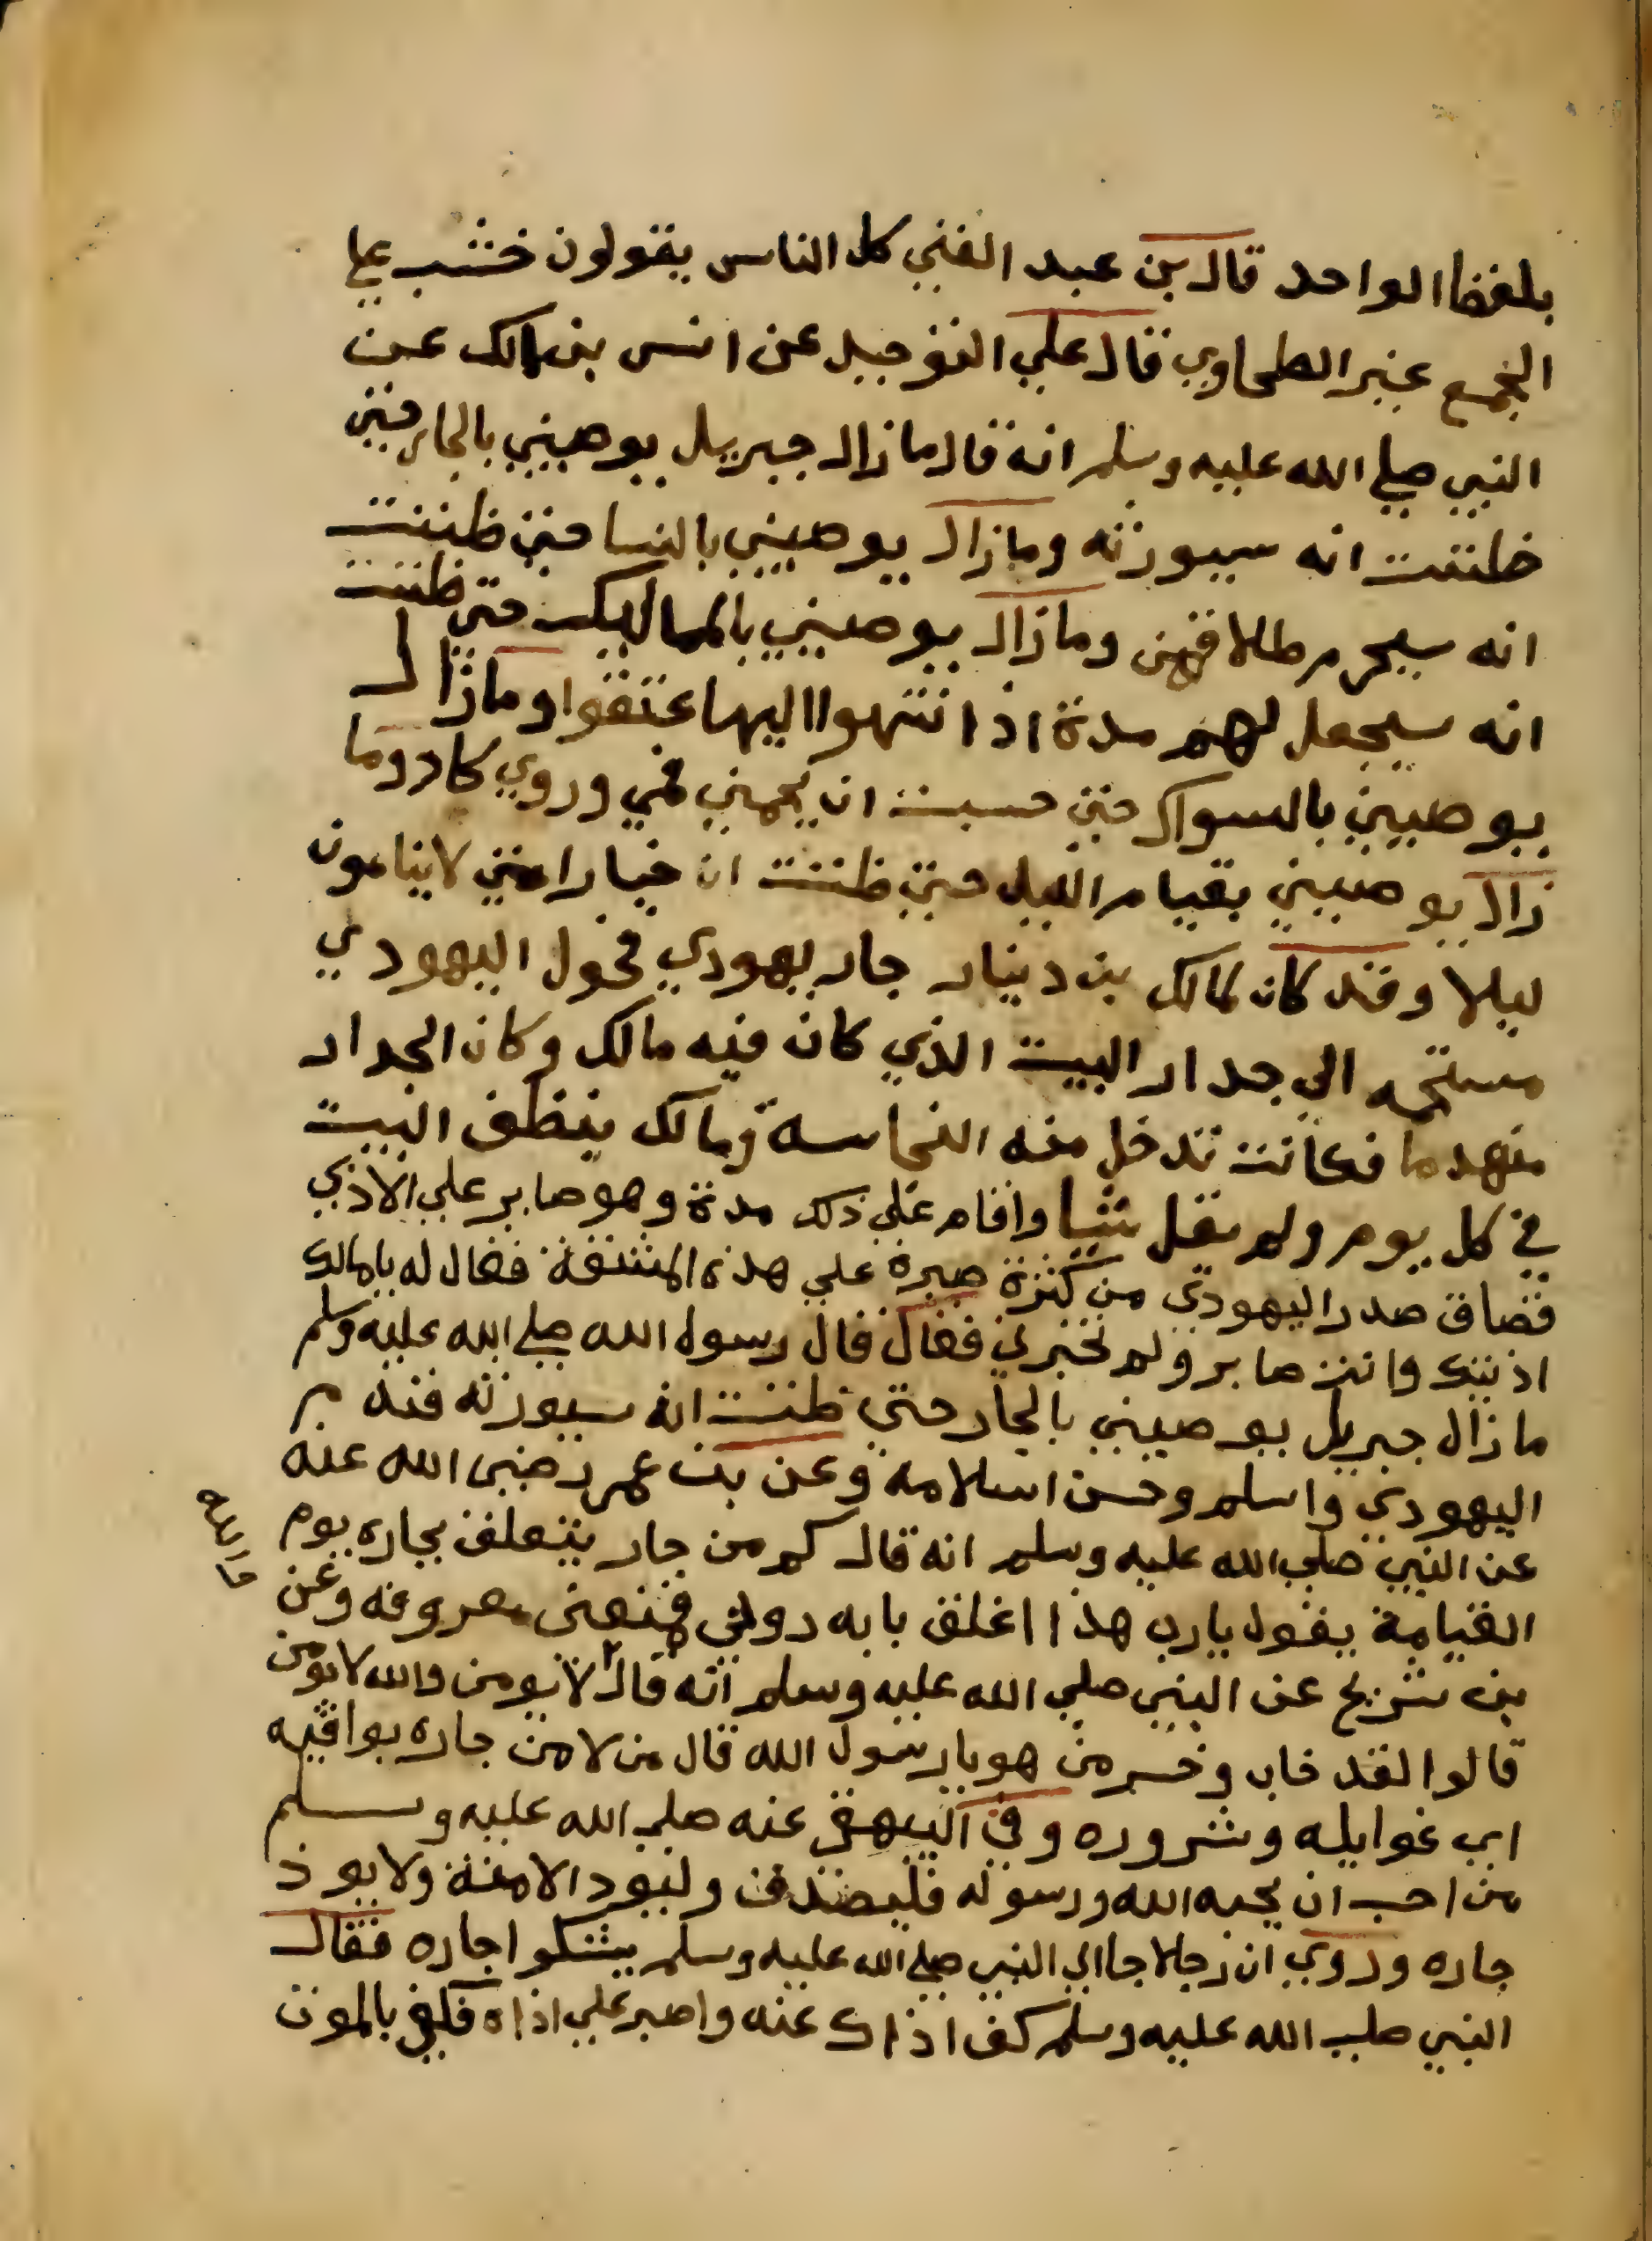 بلفظ الواحد قال بن عبد الغني كل الناس يقولون خشب علي
الجمع غير الطحاوي قال علي التوحيد عن انس بن مالك عن
النبي صلي الله عليه وسلم انه قال ما زال جبريل يوصيني بالجار حتي
ظننت انه سيورثه وما زال يوصيني بالنسا حتي ظننت
انه سيحرم طلاقهن وما زال يوصيني بالمماليك حتي ظننت
انه سيجعل لهم مدة اذا انتهوا اليها عتقوا وما زال
يوصيني بالسواك حتي حسبت ان يحفي فمي وروي كاد وما
زال يوصيني بقيام الليل حتي ظننت ان خيار امتي لا ينامون
ليلا وقد كان لمالك بن دينار جار يهودي فحول اليهودي
مستحمه الي جدار البيت الذي كان فيه مالك وكان الجدار
منهدما فكانت تدخل منه النجاسة ومالك ينظف البيت
في كل يوم ولم يقل شيا واقام علي ذلك مدة وهو صابر علي الاذي
فضاق صدر اليهودي من كثرة صبره علي هذه المشقة فقال له يا مالك
اذيتك وانت صابر ولم تخبرني فقال قال رسول الله صلي الله عليه وسلم
ما زال جبريل يوصيني بالجار حتي ظننت انه سيورثه فندم
اليهودي واسلم وحسن اسلامه وعن بن عمر رضي الله عنه
عن النبي صلي الله عليه وسلم انه قال كم من جار يتعلق بجاره يوم
القيامة يقول يارب هذا اغلق بابه دوني فمنعني معروفه وعن
بن شريح عن النبي صلي الله عليه وسلم انه قال لا يومن والله لا يومن
قالوا لقد خاب وخسر من هو يا رسول الله قال من لا من جاره بوايقه
اي غوايله وشروره وفي البيهقي عنه صلي الله عليه وسلم
من احب ان يحبه الله ورسوله فليصدق وليود الامنة ولا يوذ
جاره وروي ان رجلا جا الي النبي صلي الله عليه وسلم يشكوا جاره فقال
النبي صلي الله عليه وسلم كف اذاك عنه واصبر علي اذاه فكفي بالموت